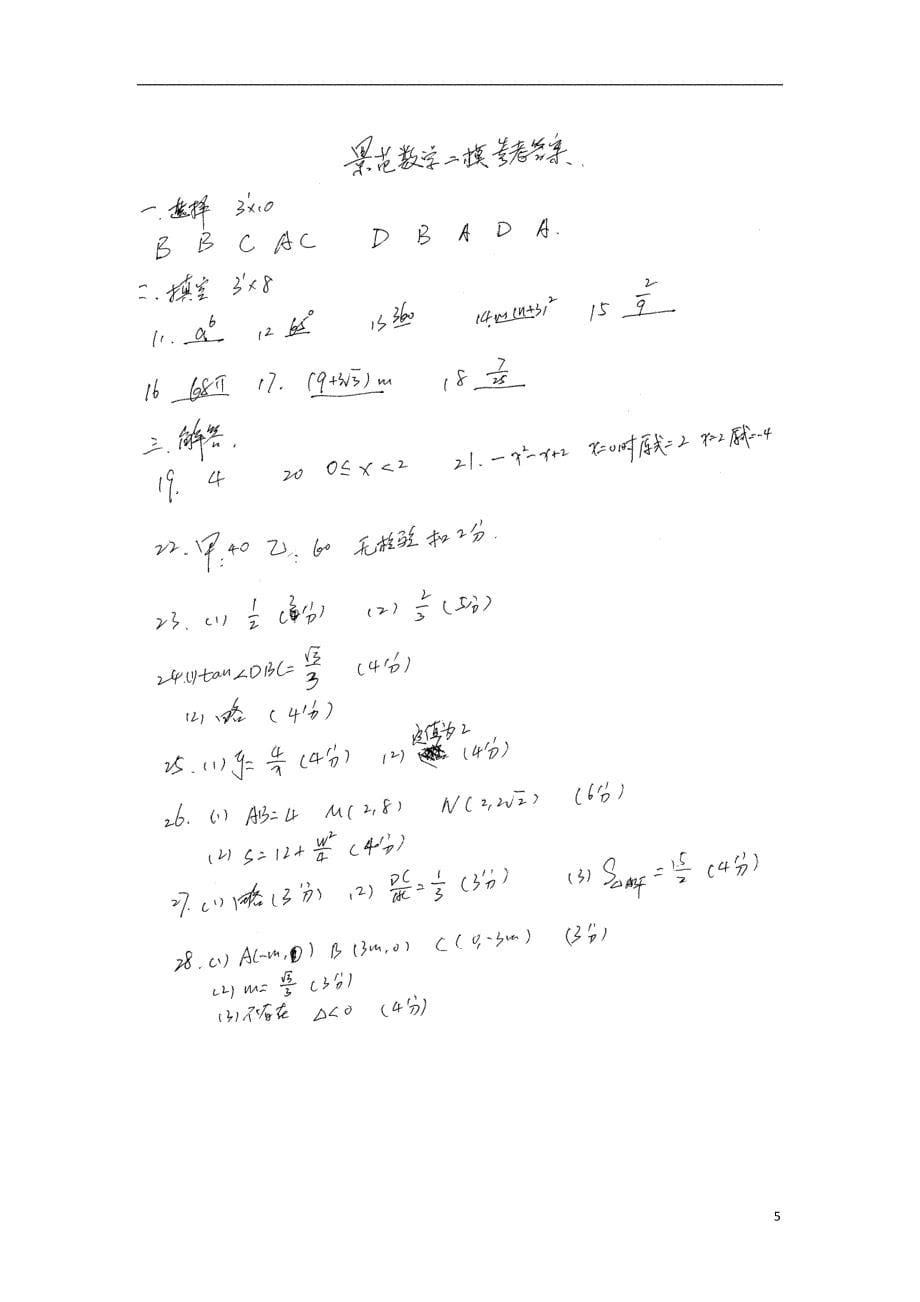 景范数学二模参考答案.
一.选择 3'×10
B B C A C D B A D A.
二.填空 3'×8
11. a⁶ 12 65° 13 360 14. m(n+3)² 15 2/9
16 68π 17. (9+3√3)m 18 7/25
三.解答.
19. 4 20 0≤x<2 21. -x²-x+2 x=0时原式=2 x=2原式=-4
22. 甲:40 乙:60 无检验扣2分.
23. (1) 1/2 (3分) (2) 2/3 (5分)
24.(1) tan∠DBC=√3/3 (4分)
(2) 略 (4分)
25. (1) y=4/x (4分) (2) 定值为2 (4分)
26. (1) AB=4 M(2,8) N(2,2√2) (6分)
(2) S=12+m²/4 (4分)
27. (1) 略(3分) (2) DC/ =1/3 (3分) (3) S△ =15/2 (4分)
28. (1) A(-m,0) B(3m,0) C(0,-3m) (3分)
(2) m=√3/3 (3分)
(3) 不存在 △<0 (4分)
5